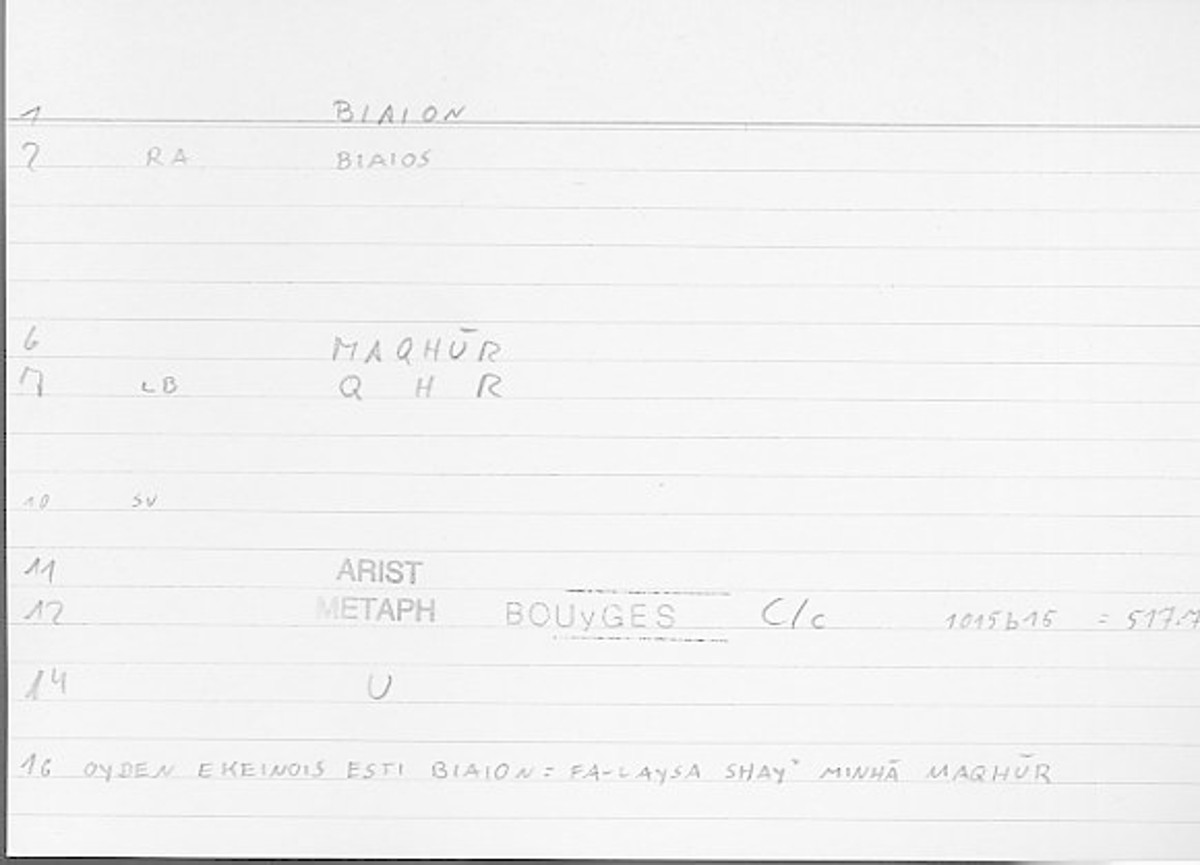 1 BIAION
2 RA BIAIOS
6 MAQHŪR
7 LB Q H R
10 SV
11 ARIST
12 METAPH BOUyGES C/c 1015b15 = 517.7
14 U
16 OYDEN EKEINOIS ESTI BIAION = FA-LAYSA SHAYʾ MINHĀ MAQHŪR